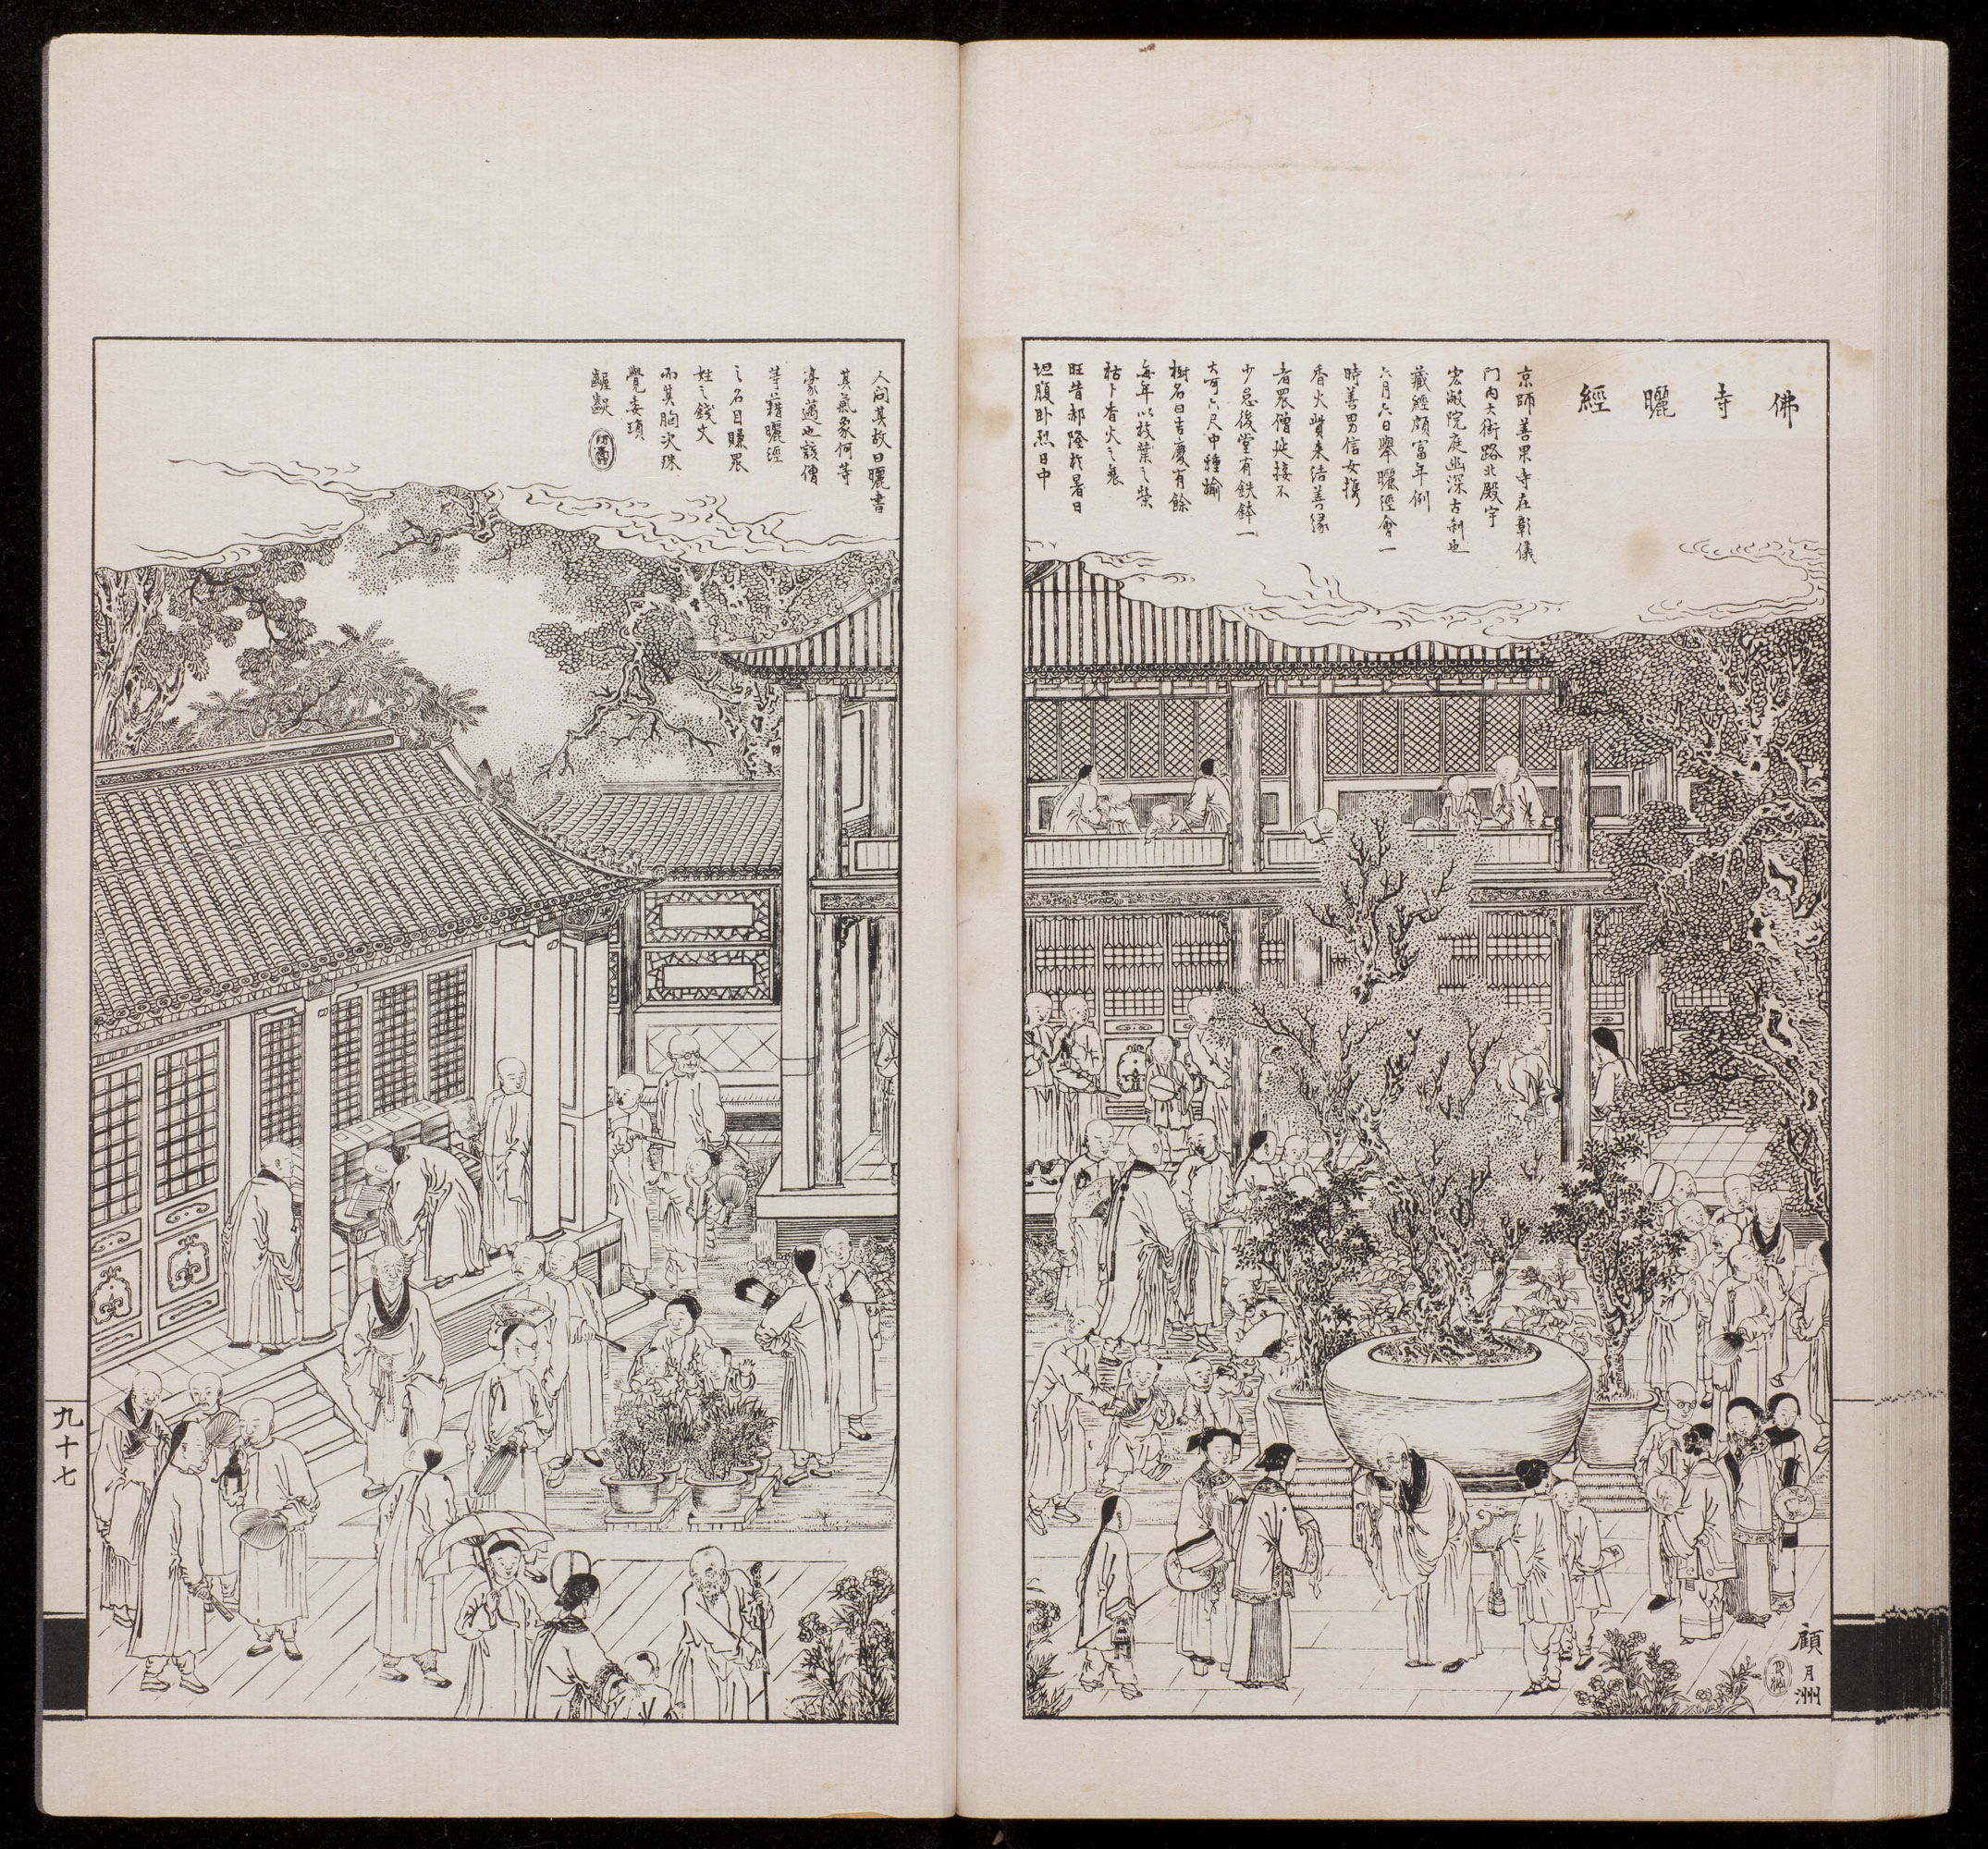 佛寺曬經
京師善果寺在彰儀
門內大街路北殿宇
宏敞院庭幽深古刹也
藏經頗富年例
六月六日舉曬經會一
時善男信女攜
香火貲來結善緣
者眾僧延接不
少怠後堂有鉄鉢一
大可六尺中種榆
樹名曰吉慶有餘
每年以枝葉之榮
枯卜香火之衰
旺昔郝隆於暑日
坦腹卧烈日中
人问其故曰曬書
其氣象何等
豪邁也該僧
等藉曬經
之名目賺眾
姓之錢文
而其胸次殊
覺委瑣
齷齪
顧月洲
九十七